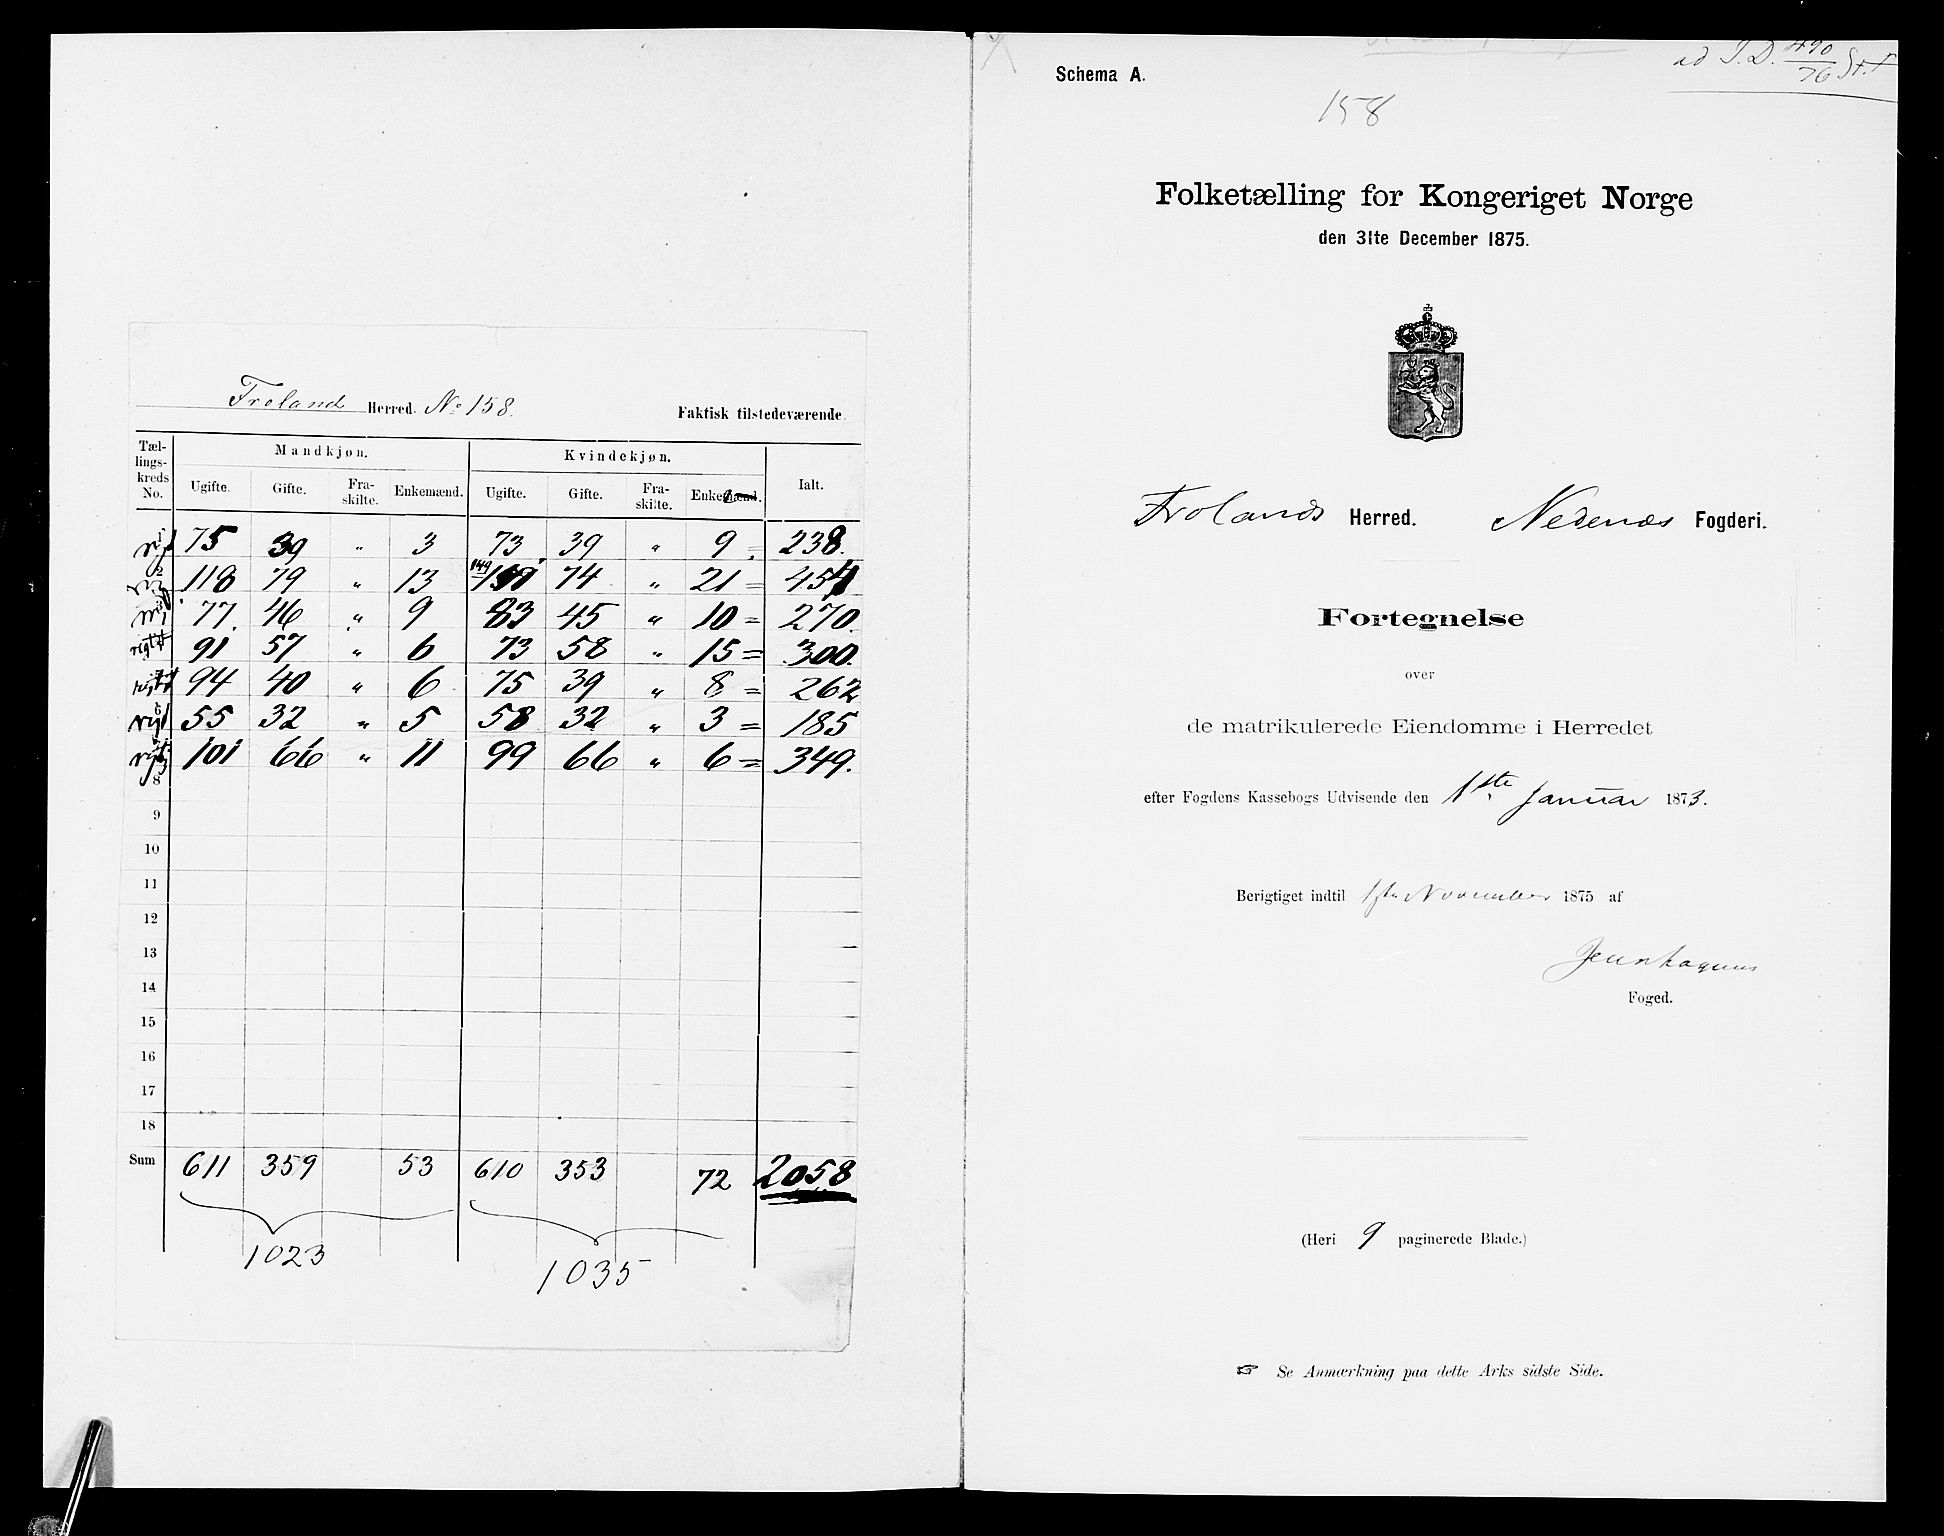 Froland Herred. No 158. Faktisk tilstedeværende.
Tællingskreds No. Mandkjøn. Kvindekjøn. Ialt.
Ugifte. Gifte. Fraskilte. Enkemænd. Ugifte. Gifte. Fraskilte. Enkemænd.
75 39 " 3 73 39 " 9 = 238.
2 118 79 " 13 149 74 " 21 = 454
77. 46 " 9 83 45 " 10 = 270.
rigtigt 91 57 " 6 73 58 " 15 = 300.
94 40 " 6 75 39 " 8 = 262
6 55 32 " 5 58 32 " 3 = 185
101 66 " 11 99 66 " 6 = 349.
8
9
10
11
12
13
14
15
16
17
18
Sum 611 359 53 610 353 72 2058
1023 1035
ad J.D. 490/76 St.
Schema A.
158
Folketælling for Kongeriget Norge
den 31te December 1875.
Frolands Herred. Nedenæs Fogderi.
Fortegnelse
over
de matrikulerede Eiendomme i Herredet
efter Fogdens Kassebogs Udvisende den 1ste Januar 1873.
Berigtiget indtil 1ste November 1875 af
Foged.
(Heri 9 paginerede Blade.)
☞ Se Anmærkning paa dette Arks sidste Side.